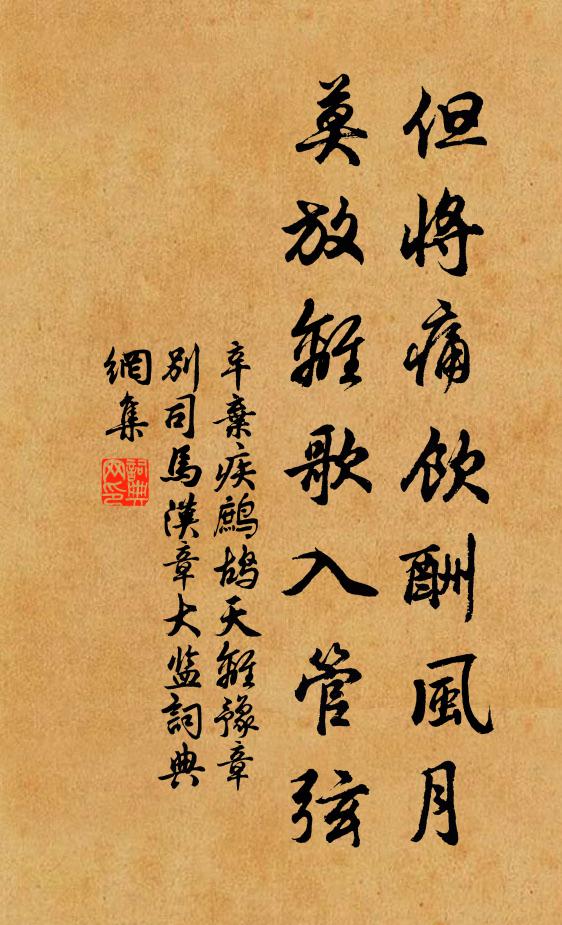 但將痛飲酬風月
莫放離歌入管弦
辛棄疾鷓鴣天離豫章
別司馬漢章大监詞典
網集
詞典網印